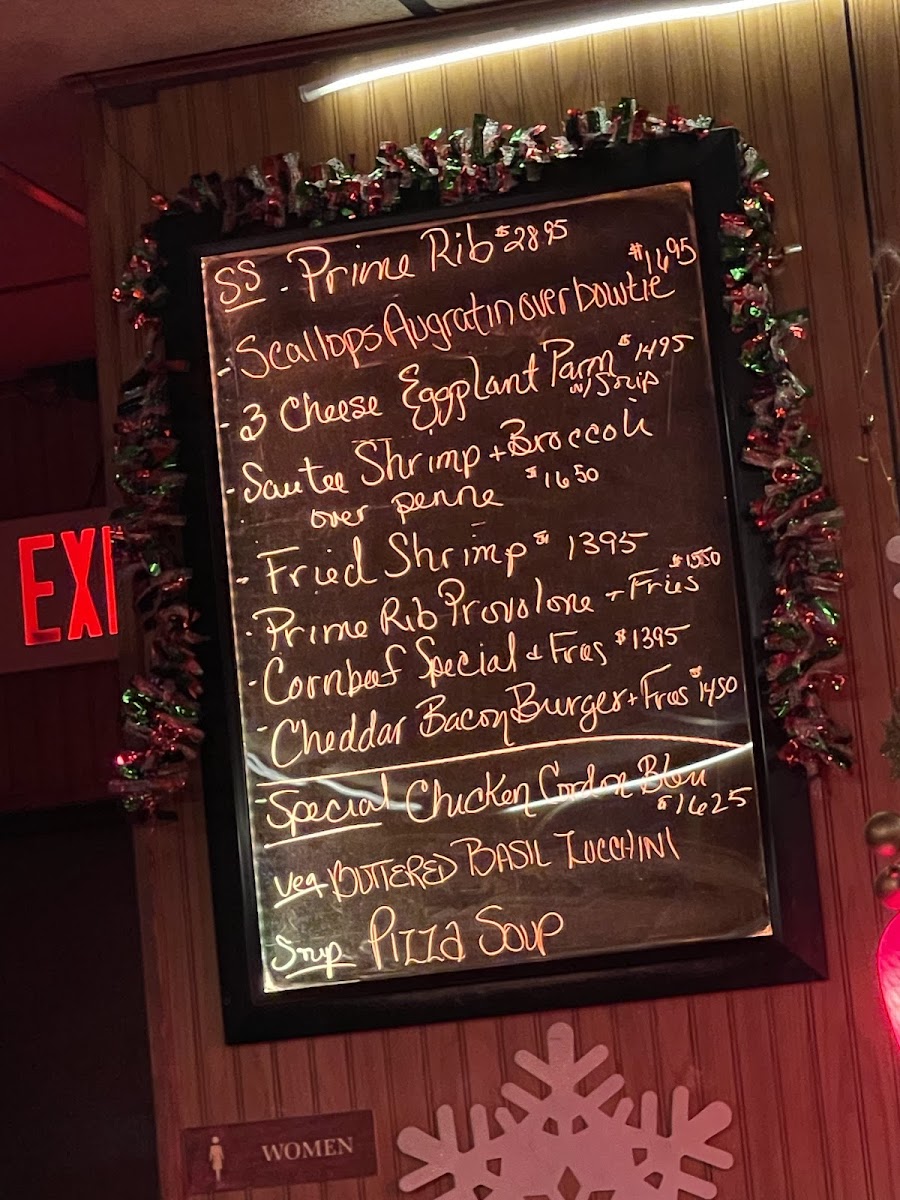 SS - Prime Rib $28.95
- Scallops Augratin over bowtie $16.95
- 3 Cheese Eggplant Parm $14.95
w/ Soup
- Sautee Shrimp + Broccoli
over penne $16.50
- Fried Shrimp $13.95
- Prime Rib Provolone + Fries $15.50
- Cornbeef Special + Fries $13.95
- Cheddar Bacon Burger + Fries $14.50
- Special Chicken Cordon Bleu
$16.25
Veg BUTTERED BASIL ZUCCHINI
Soup PIZZA SOUP
EXI
WOMEN